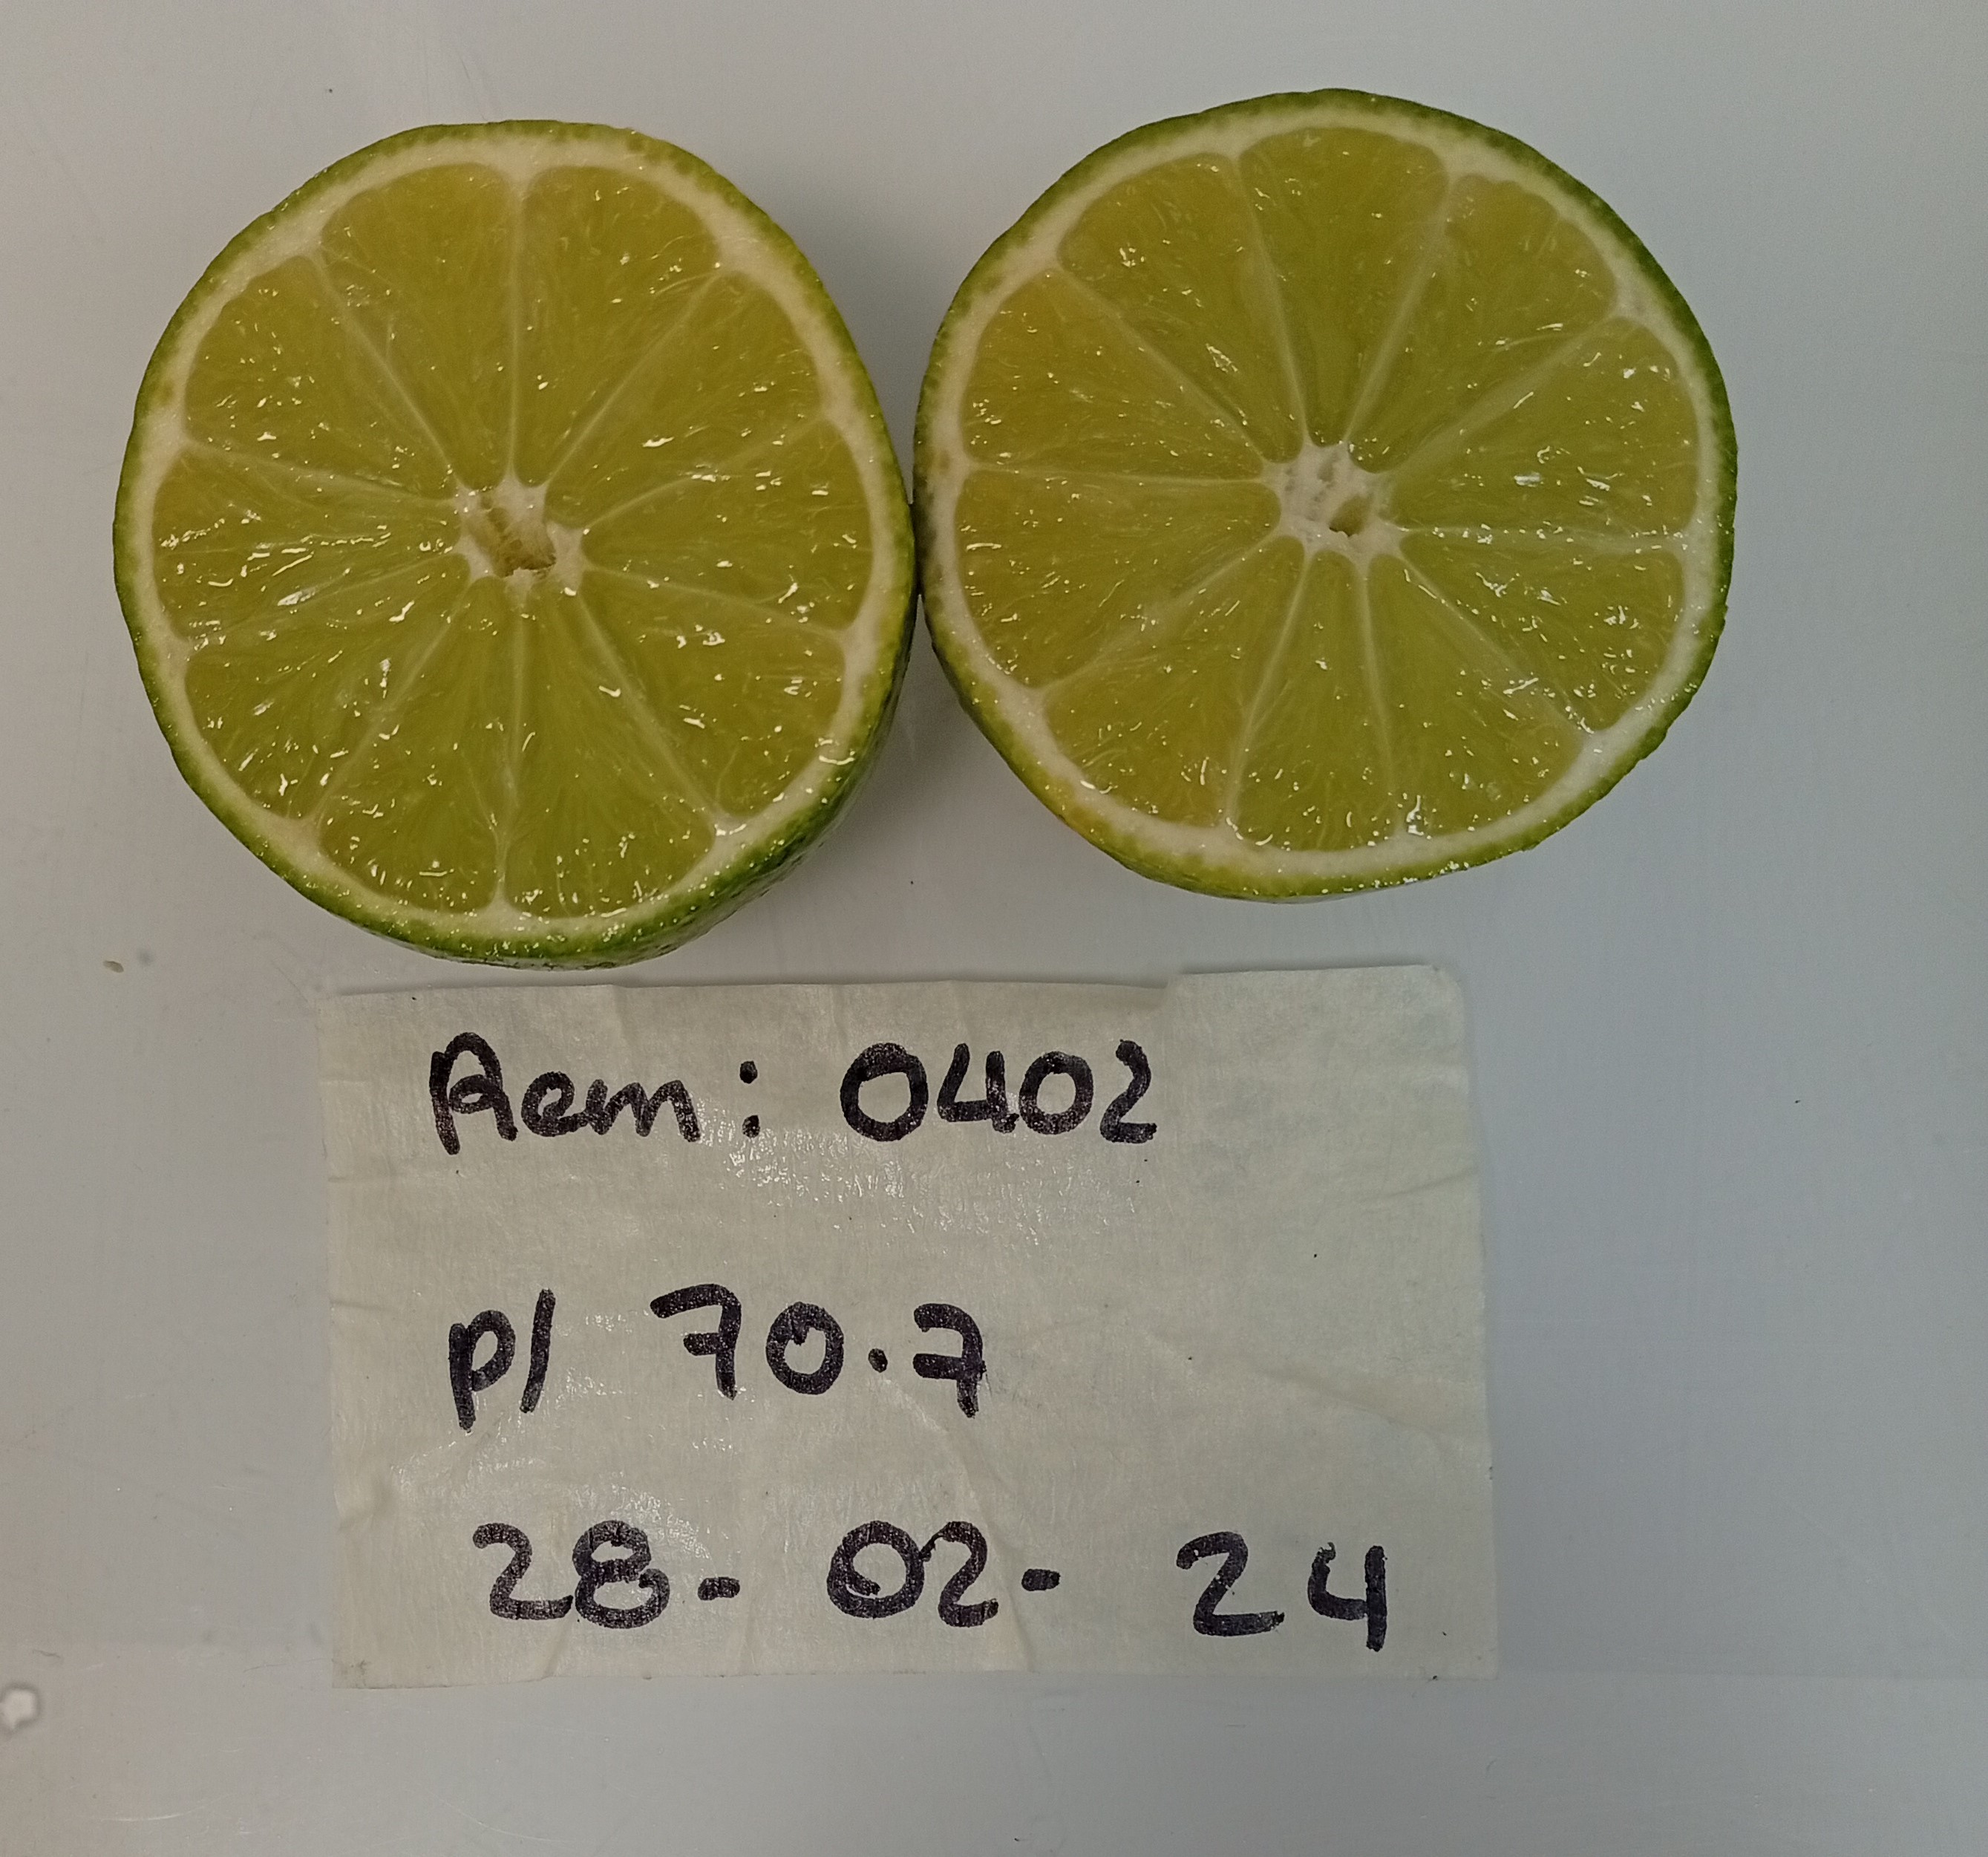 Rem: 0402
P/ 70.7
28-02-24